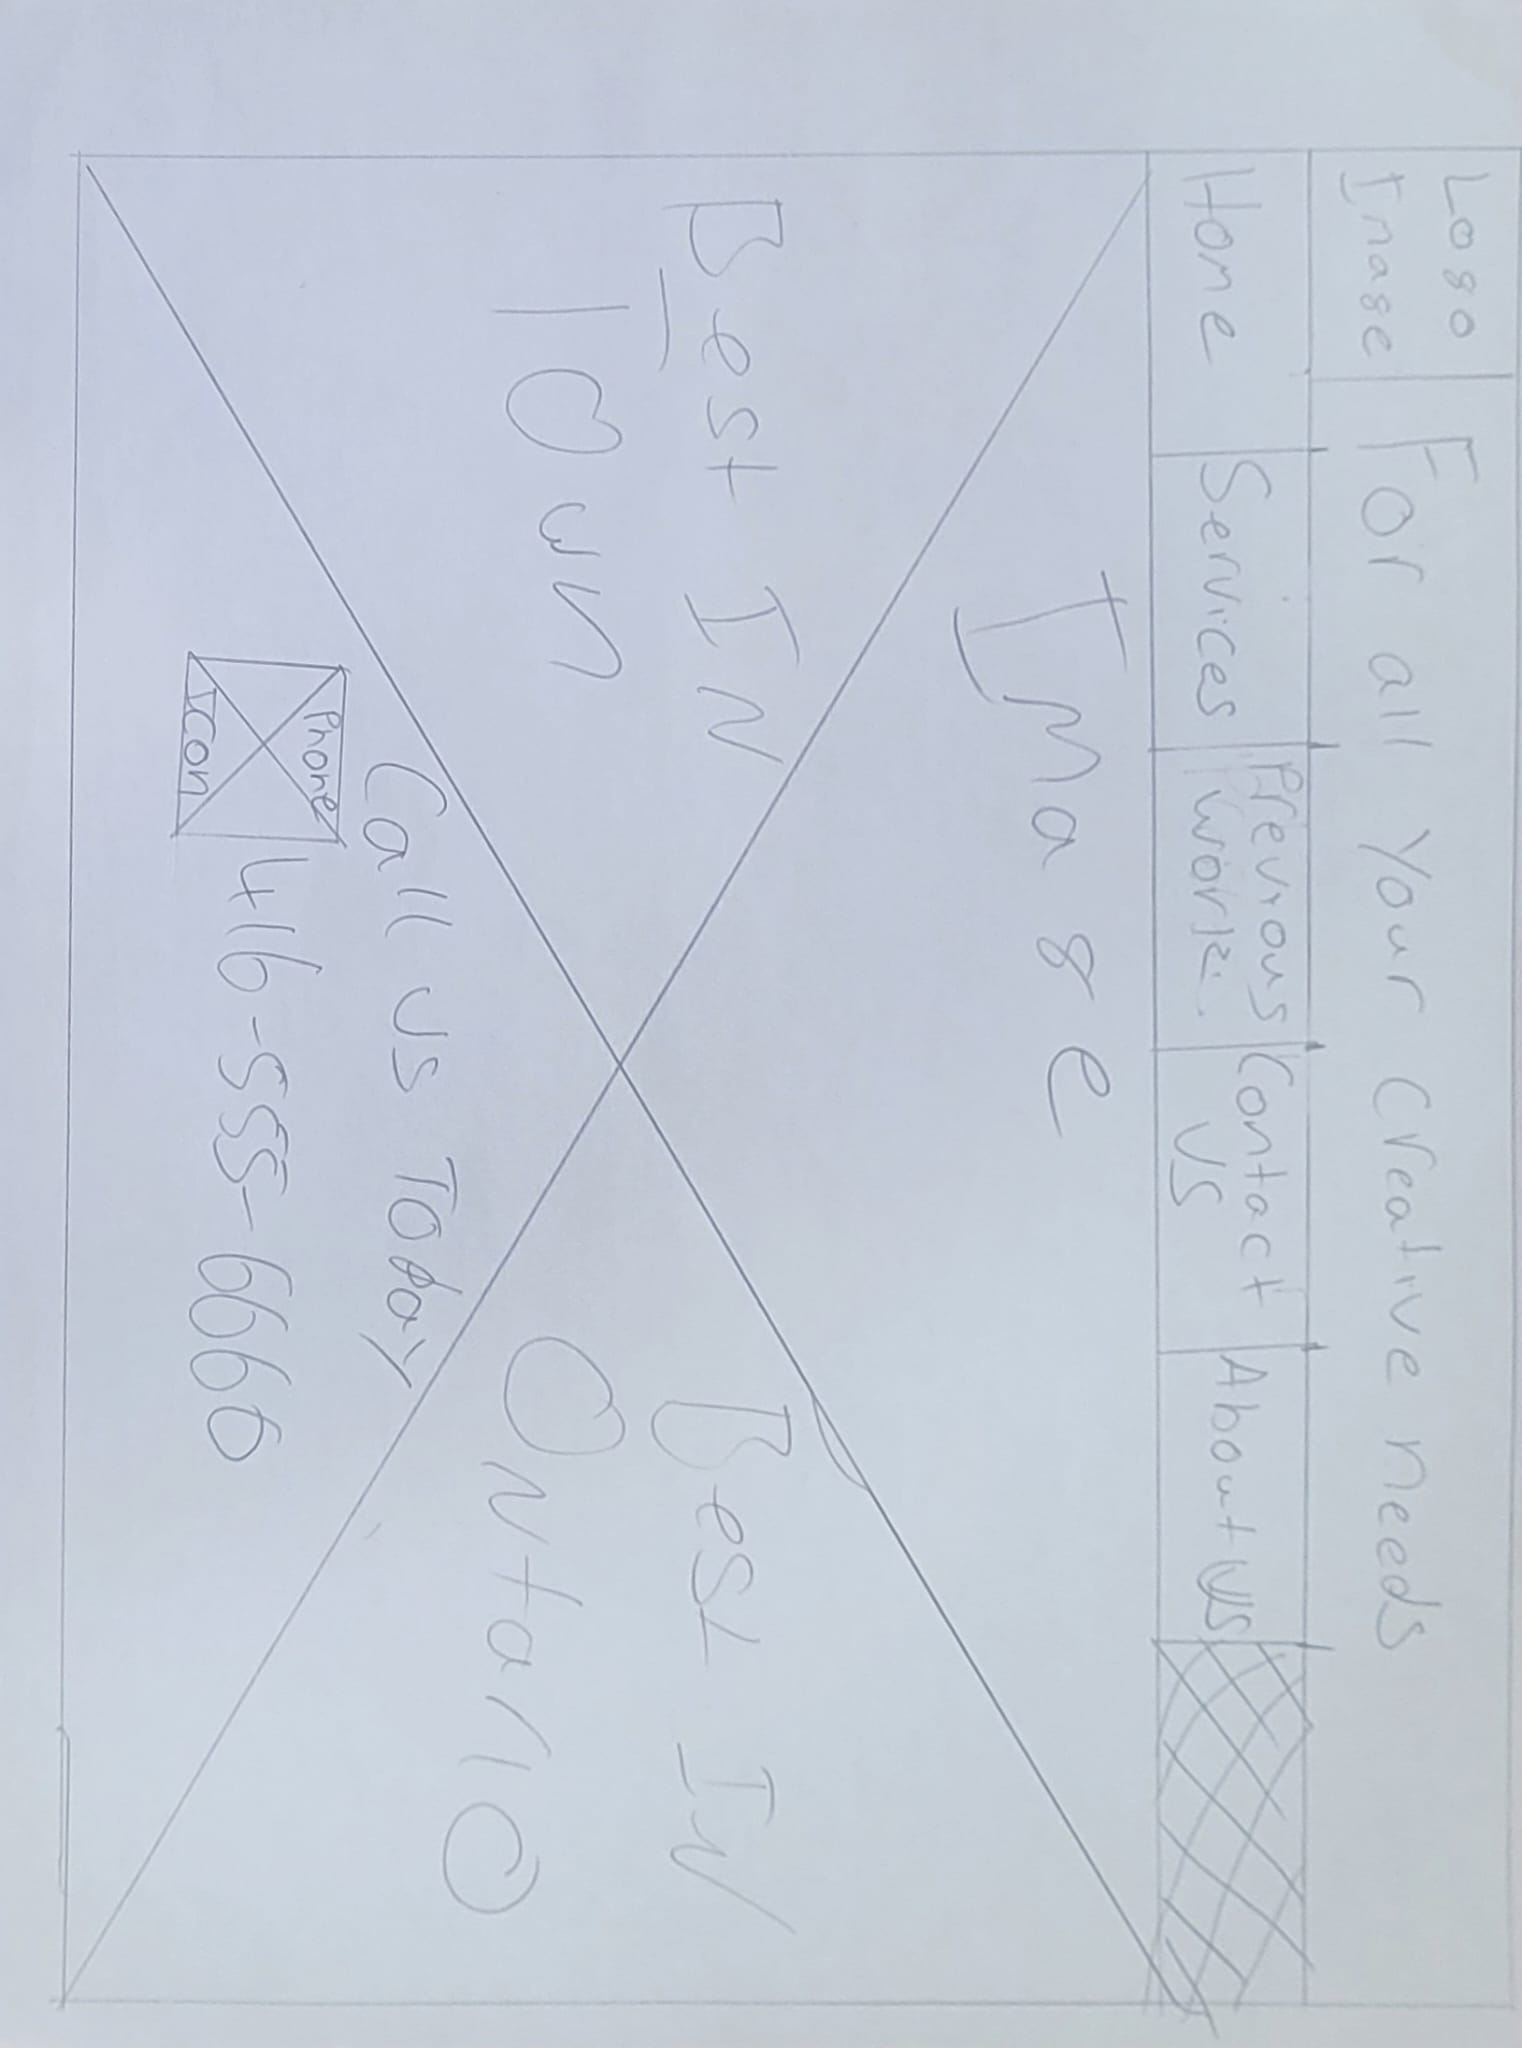 Logo
Image
For all your creative needs
Home
Services
Previous
work
Contact
US
About US
Image
Best IN
Town
Best IN
Ontario
Call US Today
Phone
Icon
416-555-6666